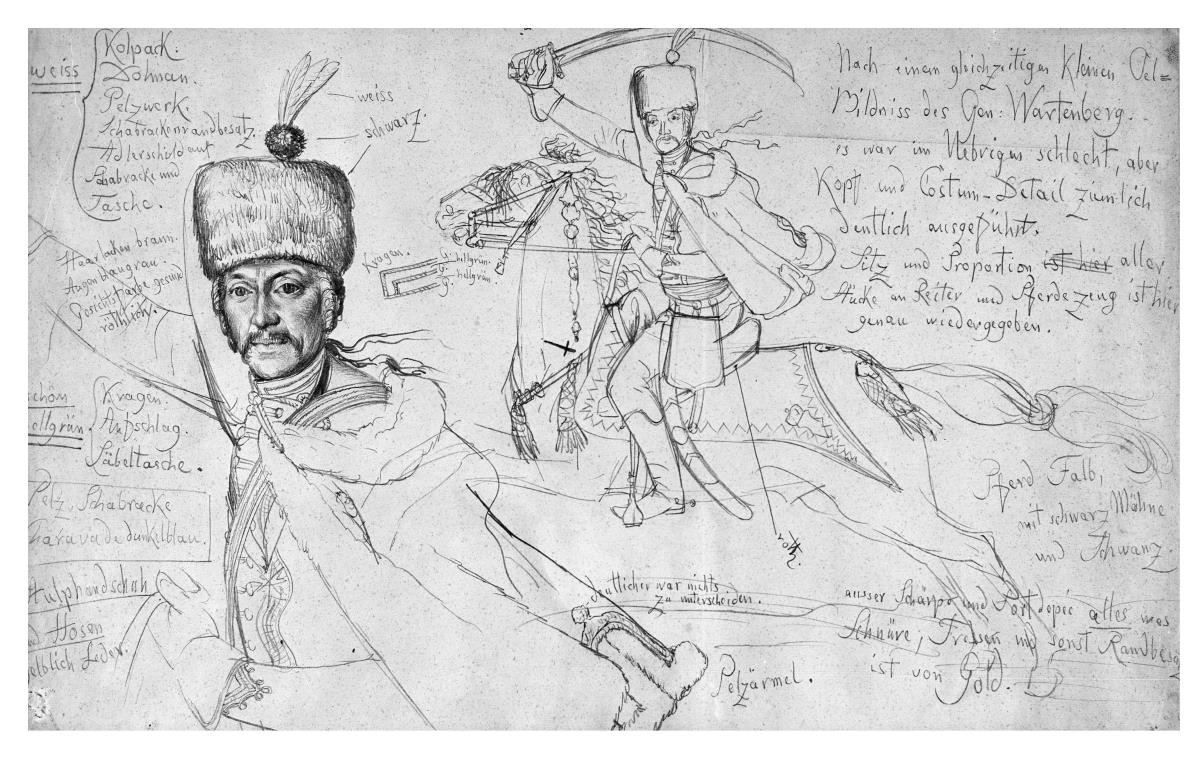 weiss
Kolpack.
Dolman.
Pelzwerk.
Schabrackenrandbesatz.
Adlerschild auf
Schabracke und
Tasche.
weiss
schwarz.
Haarlocken braun.
Augen blaugrau.
Gesichtsfarbe gesund
röthlich.
Kragen.
hellgrün.
hellgrün.
schön
hellgrün
Kragen.
Aufschlag.
Säbeltasche.
Pelz, Schabracke
dunkelblau.
Stulphandschuh
und Hosen
gelblich Leder.
Nach einem gleichzeitigen kleinen Oel=
Bildniss des Gen: Wartenberg.
es war im Uebrigen schlecht, aber
Kopf und Costum-Detail ziemlich
deutlich ausgeführt.
Sitz und Proportion ist hier aller
Stücke an Reiter und Pferdezeug ist hier
genau wiedergegeben.
Pferd Falb,
mit schwarz Mähne
und Schwanz.
roth
deutlicher war nichts
zu unterscheiden.
Pelzärmel.
ausser Schärpe und Portdepée alles was
Schnüre, Tressen und sonst Randbesatz
ist von Gold.